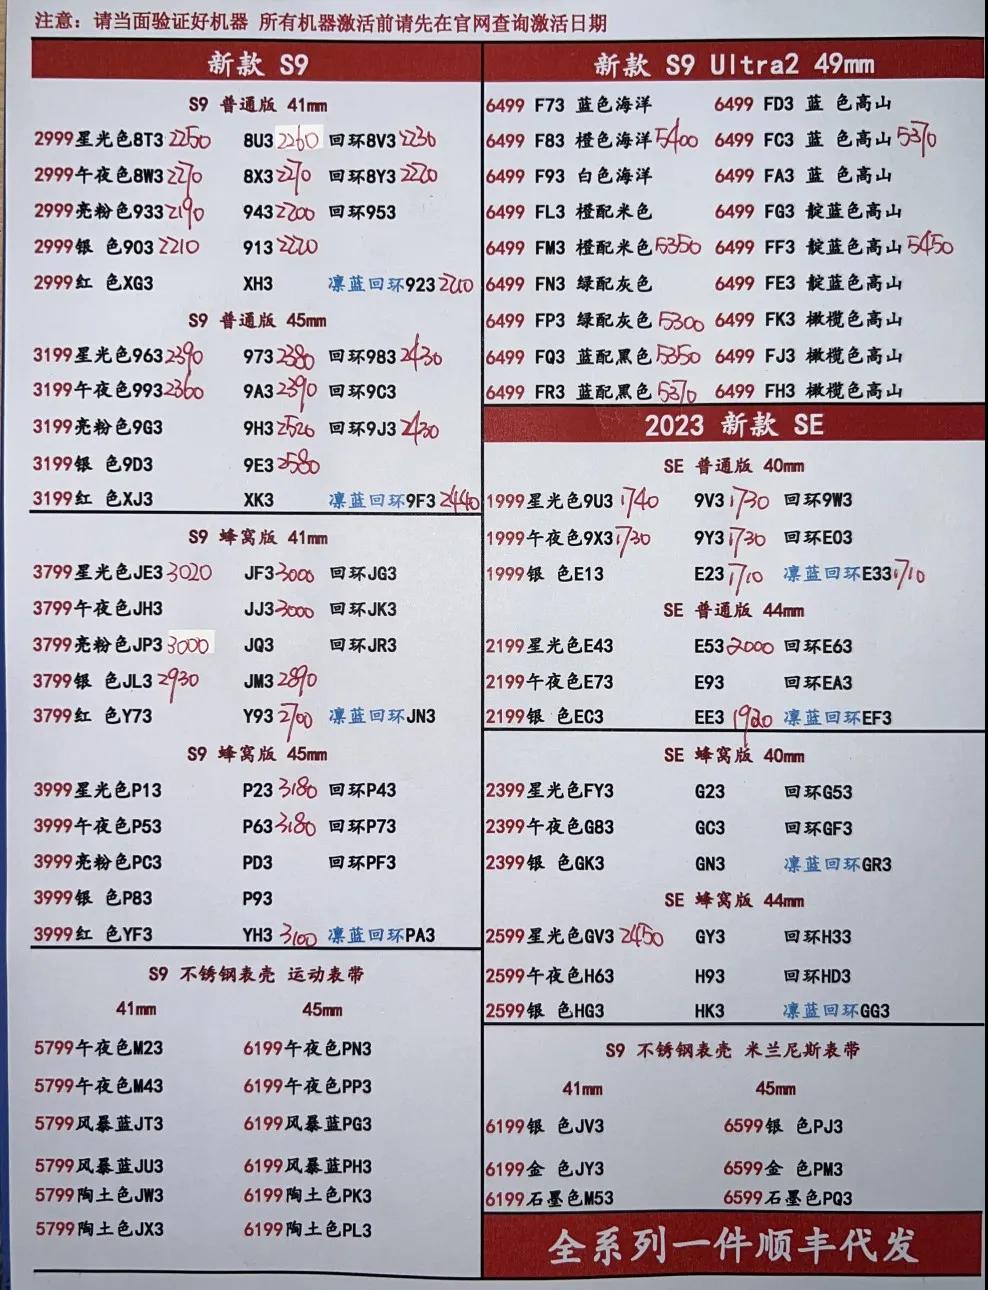 注意：请当面验证好机器 所有机器激活前请先在官网查询激活日期
新款 S9
S9 普通版 41mm
2999星光色8T3 2250 8U3 2260 回环8V3 2230
2999午夜色8W3 2270 8X3 2270 回环8Y3 2220
2999亮粉色933 2190 943 2200 回环953
2999银 色903 2210 913 2220
2999红 色XG3 XH3 凛蓝回环923 2210
S9 普通版 45mm
3199星光色963 2390 973 2380 回环983 2430
3199午夜色993 2360 9A3 2390 回环9C3
3199亮粉色9G3 9H3 2520 回环9J3 2430
3199银 色9D3 9E3 2580
3199红 色XJ3 XK3 凛蓝回环9F3 2440
S9 蜂窝版 41mm
3799星光色JE3 3020 JF3 3000 回环JG3
3799午夜色JH3 JJ3 3000 回环JK3
3799亮粉色JP3 3000 JQ3 回环JR3
3799银 色JL3 2930 JM3 2890
3799红 色Y73 Y93 2700 凛蓝回环JN3
S9 蜂窝版 45mm
3999星光色P13 P23 3180 回环P43
3999午夜色P53 P63 3180 回环P73
3999亮粉色PC3 PD3 回环PF3
3999银 色P83 P93
3999红 色YF3 YH3 3100 凛蓝回环PA3
S9 不锈钢表壳 运动表带
41mm 45mm
5799午夜色M23 6199午夜色PN3
5799午夜色M43 6199午夜色PP3
5799风暴蓝JT3 6199风暴蓝PG3
5799风暴蓝JU3 6199风暴蓝PH3
5799陶土色JW3 6199陶土色PK3
5799陶土色JX3 6199陶土色PL3
新款 S9 Ultra2 49mm
6499 F73 蓝色海洋 6499 FD3 蓝 色高山
6499 F83 橙色海洋 5400 6499 FC3 蓝 色高山 5370
6499 F93 白色海洋 6499 FA3 蓝 色高山
6499 FL3 橙配米色 6499 FG3 靛蓝色高山
6499 FM3 橙配米色 5350 6499 FF3 靛蓝色高山 5450
6499 FN3 绿配灰色 6499 FE3 靛蓝色高山
6499 FP3 绿配灰色 5300 6499 FK3 橄榄色高山
6499 FQ3 蓝配黑色 5350 6499 FJ3 橄榄色高山
6499 FR3 蓝配黑色 5370 6499 FH3 橄榄色高山
2023 新款 SE
SE 普通版 40mm
1999星光色9U3 1740 9V3 1730 回环9W3
1999午夜色9X3 1730 9Y3 1730 回环E03
1999银 色E13 E23 1710 凛蓝回环E33 1710
SE 普通版 44mm
2199星光色E43 E53 2000 回环E63
2199午夜色E73 E93 回环EA3
2199银 色EC3 EE3 1920 凛蓝回环EF3
SE 蜂窝版 40mm
2399星光色FY3 G23 回环G53
2399午夜色G83 GC3 回环GF3
2399银 色GK3 GN3 凛蓝回环GR3
SE 蜂窝版 44mm
2599星光色GV3 2450 GY3 回环H33
2599午夜色H63 H93 回环HD3
2599银 色HG3 HK3 凛蓝回环GG3
S9 不锈钢表壳 米兰尼斯表带
41mm 45mm
6199银 色JV3 6599银 色PJ3
6199金 色JY3 6599金 色PM3
6199石墨色M53 6599石墨色PQ3
全系列一件顺丰代发